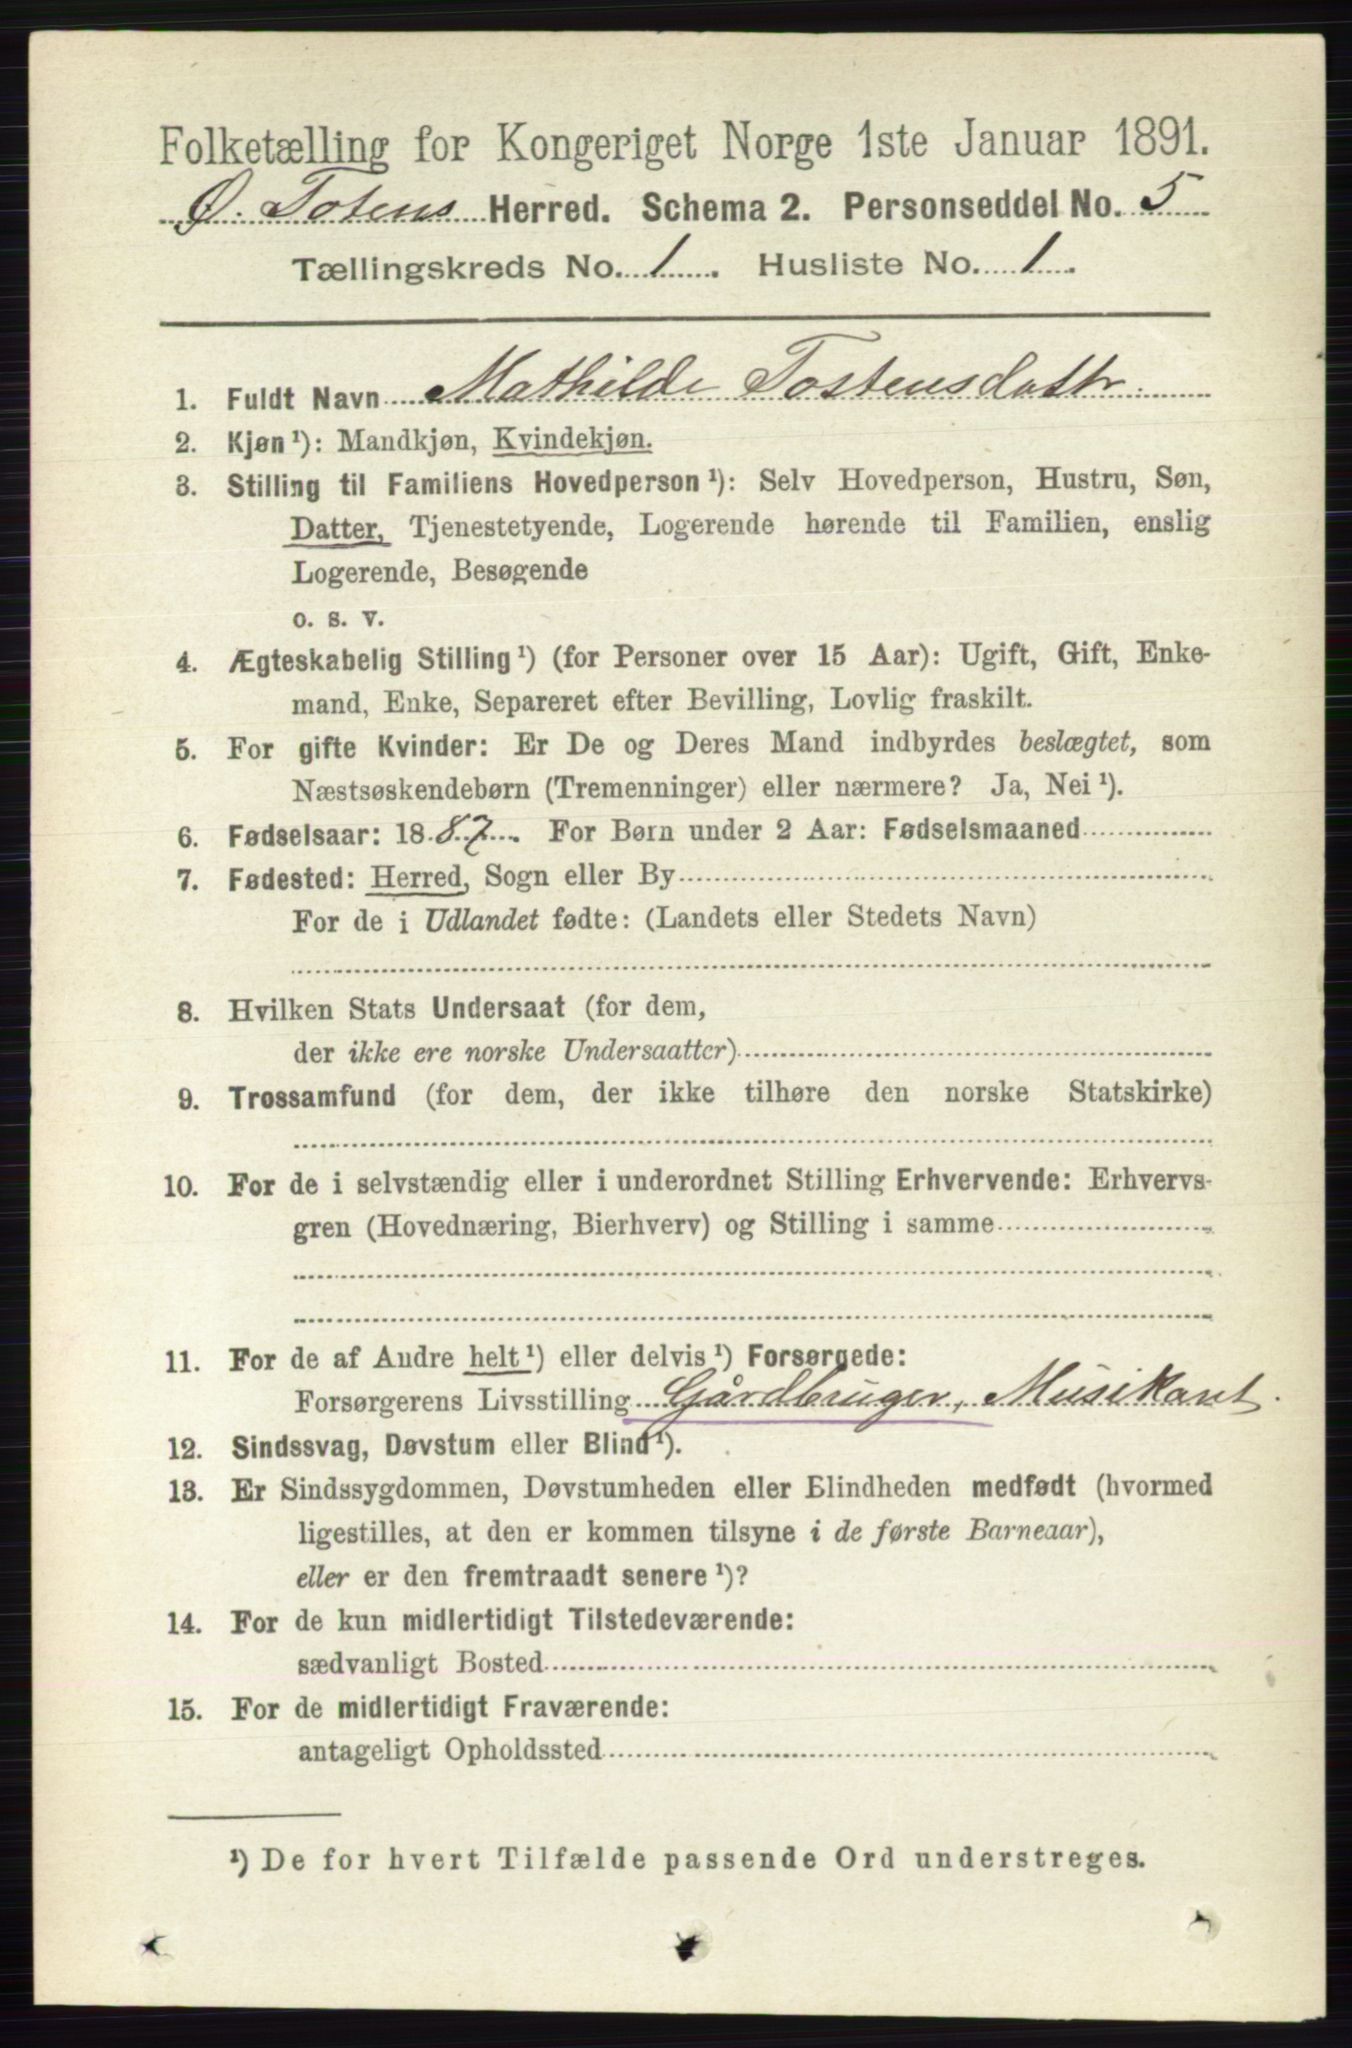 Folketælling for Kongeriget Norge 1ste Januar 1891.
Ø. Totens Herred. Schema 2. Personseddel No. 5
Tællingskreds No. 1. Husliste No. 1.
1. Fuldt Navn Mathilde Tostensdattr.
2. Kjøn ¹): Mandkjøn, Kvindekjøn.
3. Stilling til Familiens Hovedperson ¹): Selv Hovedperson, Hustru, Søn,
Datter, Tjenestetyende, Logerende hørende til Familien, enslig
Logerende, Besøgende
o. s. v.
4. Ægteskabelig Stilling ¹) (for Personer over 15 Aar): Ugift, Gift, Enke-
mand, Enke, Separeret efter Bevilling, Lovlig fraskilt.
5. For gifte Kvinder: Er De og Deres Mand indbyrdes beslægtet, som
Næstsøskendebørn (Tremenninger) eller nærmere? Ja, Nei ¹).
6. Fødselsaar: 1887. For Børn under 2 Aar: Fødselsmaaned
7. Fødested: Herred, Sogn eller By
For de i Udlandet fødte: (Landets eller Stedets Navn)
8. Hvilken Stats Undersaat (for dem,
der ikke ere norske Undersaatter)
9. Trossamfund (for dem, der ikke tilhøre den norske Statskirke)
10. For de i selvstændig eller i underordnet Stilling Erhvervende: Erhvervs-
gren (Hovednæring, Bierhverv) og Stilling i samme
11. For de af Andre helt ¹) eller delvis ¹) Forsørgede:
Forsørgerens Livsstilling Gårdbruger, Musikant.
12. Sindssvag, Døvstum eller Blind ¹).
13. Er Sindssygdommen, Døvstumheden eller Blindheden medfødt (hvormed
ligestilles, at den er kommen tilsyne i de første Barneaar),
eller er den fremtraadt senere ¹)?
14. For de kun midlertidigt Tilstedeværende:
sædvanligt Bosted
15. For de midlertidigt Fraværende:
antageligt Opholdssted
¹) De for hvert Tilfælde passende Ord understreges.